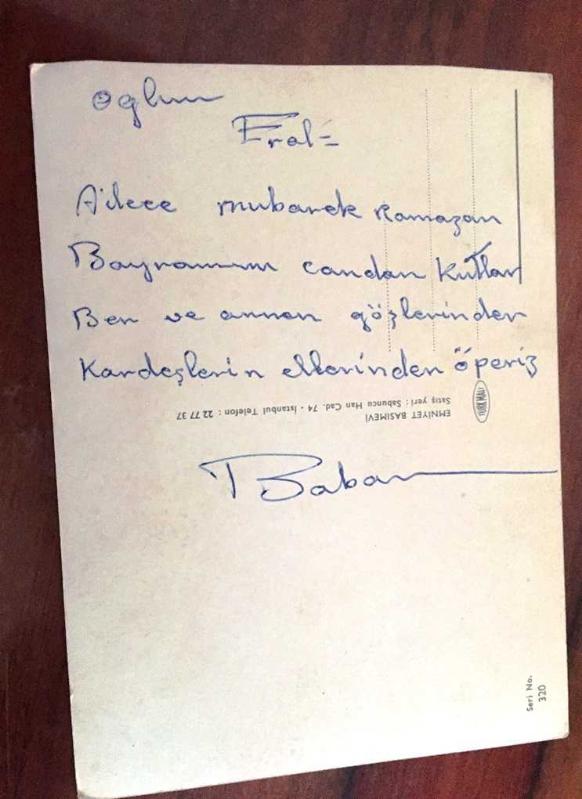 oğlum
Eral=
Ailece mubarek Ramazan
Bayramını candan kutlar
Ben ve annen gözlerinden
kardeşlerin ellerinden öperiz
TÜRK MALI
EMNİYET BASIMEVİ
Satış yeri : Sabuncu Han Cad. 74 - İstanbul Telefon : 22 77 37
Baban
Seri No.
320